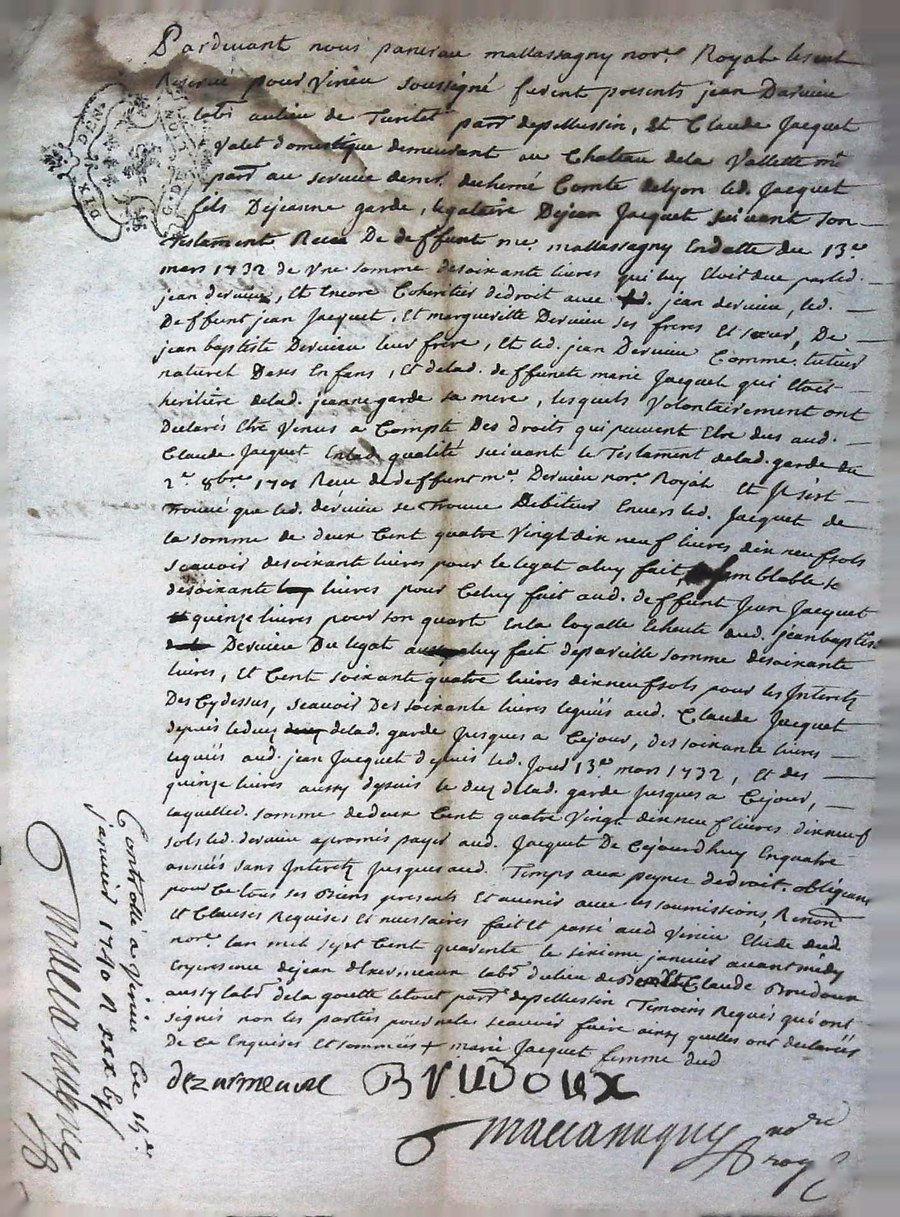 Pardevant nous pancrau mallassagny nore. Royal
Reservé pour Virieu soussigné furent presents jean Dervieu
labr. au lieu de Turitet parr. de pellussin, Et Claude Jacquet
Valet domestique demeurant au Chateau de la Vallette me
parr. au service de mr. duchemé Comte de Lyon led. Jacquet
fils De jeanne garde, legataire De jean Jacquet suivant son
Testament Receu De deffunt me. mallassagny En datte du 13e.
mars 1732 de Une somme de soixante livres qui luy Etoit due par led.
jean dervieu, Et Encore Coheritier de droit avec led. jean dervieu, led.
Deffunt jean Jacquet, Et margueritte Dervieu ses freres Et soeur, De
jean baptiste Dervieu leur frere, Et led. jean Dervieu Comme tuteur
naturel De ses Enfans, Et de lad. deffunete marie Jacquet qui Etoit
heritiere de lad. jeanne garde sa mere, lesquels Volontairement ont
Declarés Etre Venus a Compte Des droits qui peuvent Etre dus aud.
Claude Jacquet En lad. qualité suivant le Testament de lad. garde du
2e. 8bre 1701 Receu de deffunt me. Dervieu nore. Royal Et Il s'est
Trouvé que led. dervieu se Trouve Debiteur Envers led. Jacquet de
la somme de deux Cent quatre Vingt dix neuf livres dix neuf sols
scavoir de soixante livres pour le legat a luy fait, semblable
de soixante livres pour Celuy fait aud. deffunt Jean Jacquet
quinze livres pour son quart En la loyalle Echeute dud. jean baptiste
Dervieu Du legat a luy fait de pareille somme de soixante
livres, Et Cent soixante quatre livres dix neuf sols pour les Interets
Des Cy dessus, scavoir Des soixante livres legués aud. Claude Jacquet
depuis le decez de lad. garde jusques a Cejour, des soixante livres
legués aud. jean Jacquet depuis led. Jour 13e. mars 1732, Et des
quinze livres aussy depuis le decez de lad. garde jusques a Cejour,
laquelle d. somme de deux Cent quatre Vingt dix neuf livres dix neuf
sols led. dervieu a promis payer aud. Jacquet De Cejourdhuy En quatre
années sans Interets jusques aud. Temps aux peynes de droit. obligeant
pour Ce tous ses Biens presents Et avenir avec les soumissions, Renonon.
Et Clauses Requises Et necessaires fait Et passé aud Virieu Etude dud
nore. lan mil sept Cent quarente le sixieme janvier avant midy
En presence de jean labr. du lieu de Claude Brudoux
aussy labr. de la gouette le tout parr. de pellussin Temoins Requis qui ont
signés non les parties pour ne le scavoir faire ainsy quelles ont declarées
de Ce Enquises Et sommées + marie Jacquet femme dud
dezormeaux BRUDOUX
mallassagny nore
roy
Controllé a Virieu Ce 15e.
janvier 1740 R xxx
mallassagny
DIX DEN
G. DE LION